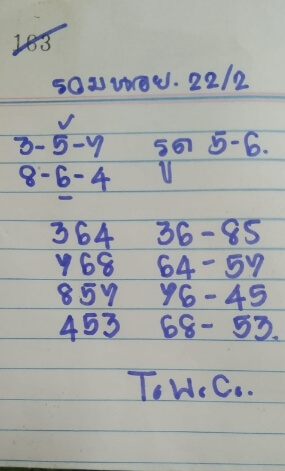 163
รวมหอย. 22/2
3-5-7 รูด 5-6.
8-6-4
364 36-85
768 64-57
857 76-45
453 68-53.
T.W.C..